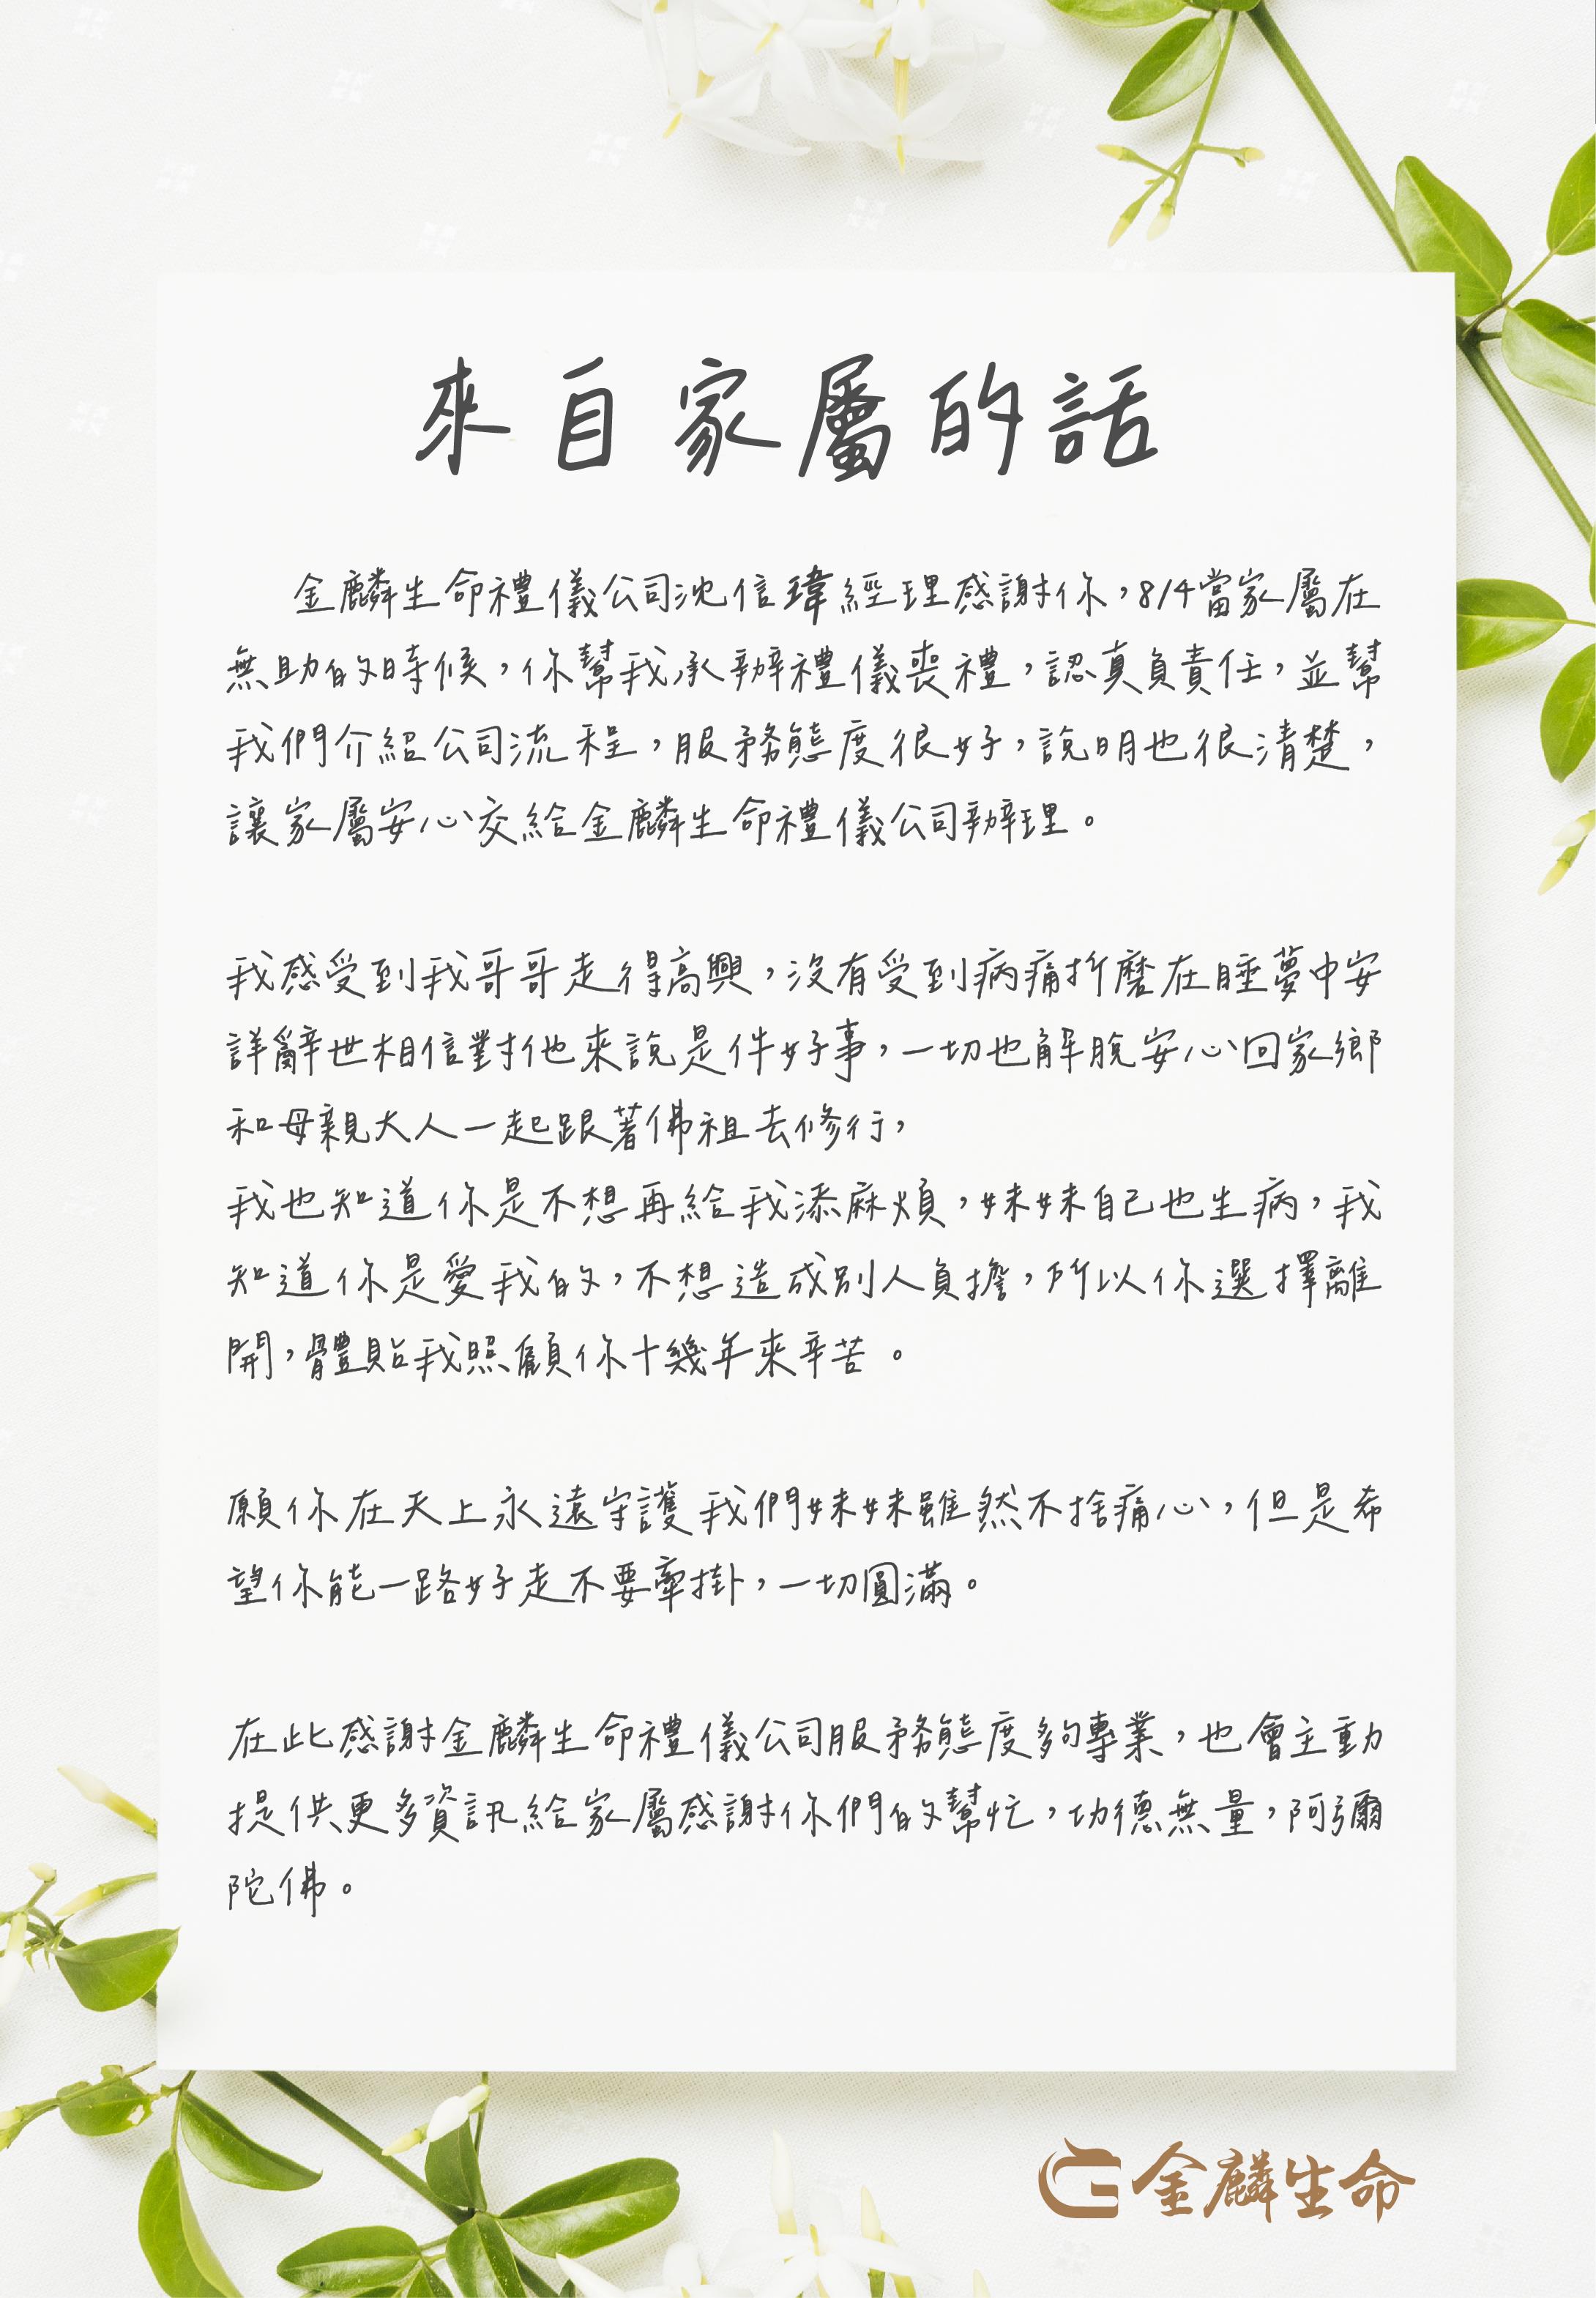 來自家屬的話
金麟生命禮儀公司沈信瑋經理感謝你，8/4當家屬在
無助的時候，你幫我承辦禮儀喪禮，認真負責任，並幫
我們介紹公司流程，服務態度很好，說明也很清楚，
讓家屬安心交給金麟生命禮儀公司辦理。
我感受到我哥哥走得高興，沒有受到病痛折磨在睡夢中安
詳辭世相信對他來說是件好事，一切也解脫安心回家鄉
和母親大人一起跟著佛祖去修行，
我也知道你是不想再給我添麻煩，妹妹自己也生病，我
知道你是愛我的，不想造成別人負擔，所以你選擇離
開，體貼我照顧你十幾年來辛苦。
願你在天上永遠守護我們妹妹雖然不捨痛心，但是希
望你能一路好走不要牽掛，一切圓滿。
在此感謝金麟生命禮儀公司服務態度夠專業，也會主動
提供更多資訊給家屬感謝你們的幫忙，功德無量，阿彌
陀佛。
金麟生命